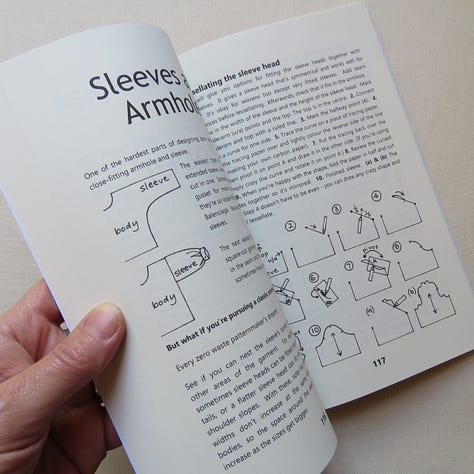 Sleeves a
Armhol
One of the hardest parts of designing
close-fitting armhole and sleeve.
The easiest
extended
cut in one,
gusset for
they're so
Balenciaga
sleeves.
The next easiest
square-cut
in the seam
sometimes
sleeve
body
sleeve
body
But what if you're pursuing a classic
Every zero waste patternmaker's dream!
See if you can nest the sleeve's
other areas of the garment.
sometimes sleeve heads can be
tails, or a flatter sleeve head can
shoulder slopes. With these,
widths don't increase at the same
bodies, so the space around the
increase as the sizes get bigger.
ellating the sleeve head
give you options for fitting the sleeve heads together with
selves. It gives a sleeve head that's symmetrical and works well for
for wovens top except very fitted sleeves. Add seam
before tessellating. Afterwards, check that it fits the armhole.
in the width of the sleeve and the height of the sleeve head. Mark
(u/a) points and the top. The top is in the centre. 2. Connect
and top with a ruled line. 3. Mark the halfway point (A). 4.
curve for one side. 5. Trace the curve on a piece of tracing paper.
the tracing paper over and lightly colour the reverse side of the line
making your own carbon paper). 7. Put the tracing back over the
then pivot it on point A and draw it in the other side.
copy the curve and rotate it on point A.) 8. Review the curved
9. When you're happy with the shape, fold the paper in half and cut
together so it's mirrored. 10. Finished sleeve. (a) & (b)
Step 4 doesn't have to be even - you can draw any crazy shape and
tessellate.
2
3
4
6
7
pivot
8
10
(a)
(b)
117